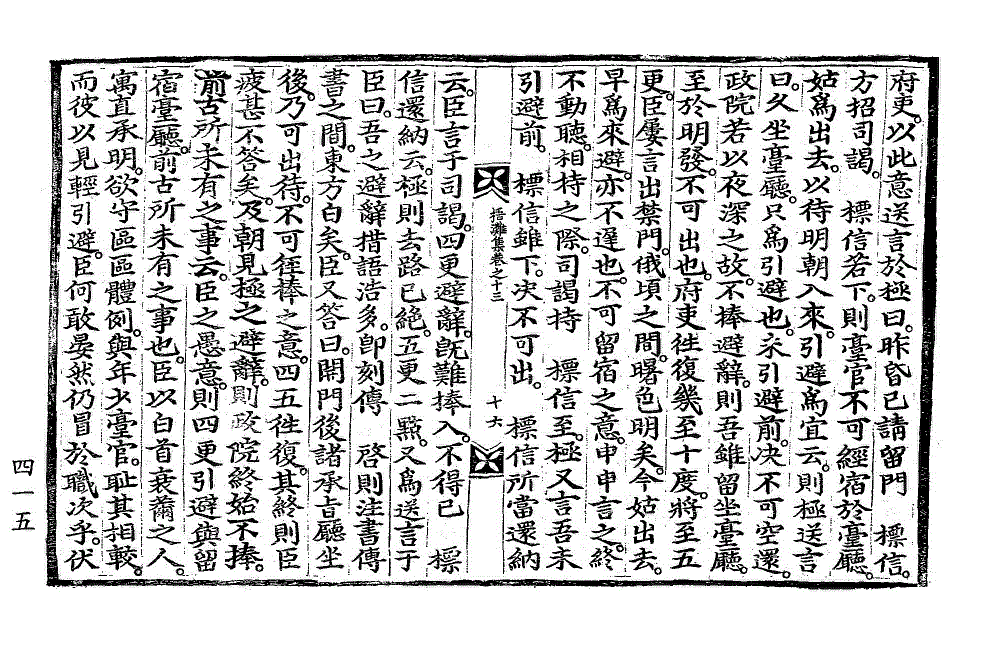 府吏。以此意送言於極曰。昨昏已請留門　標信。
方招司謁。　標信若下。則臺官不可經宿於臺廳。
姑爲出去。以待明朝入來。引避爲宜云。則極送言
曰。久坐臺廳。只爲引避也。未引避前。决不可空還。
政院若以夜深之故。不捧避辭。則吾雖留坐臺廳。
至於明發。不可出也。府吏徃復幾至十度。將至五
更。臣屢言出禁門。俄頃之間。曙色明矣。今姑出去。
早爲來避。亦不遅也。不可留宿之意。申申言之。終
不動聽。相持之際。司謁持　標信至。極又言吾未
引避前。　標信雖下。决不可出。　標信所當還納
梧灘集卷之十三　十六
云。臣言于司謁。四更避辭。旣難捧入。不得已　標
信還納云。極則去路已絶。五更二點。又爲送言于
臣曰。吾之避辭措語浩多。卽刻傳　啓則注書傳
書之間。東方白矣。臣又答曰。開門後諸承旨廳坐
後。乃可出待。不可徑捧之意。四五徃復。其終則臣
疲甚不答矣。及朝見極之避辭。則政院終始不捧。
前古所未有之事云。臣之愚意。則四更引避與留
宿臺廳。前古所未有之事也。臣以白首衰薾之人。
寓直承明。欲守區區體例。與年少臺官。恥其相較。
而彼以見輕引避。臣何敢晏然仍冒於職次乎。伏
四一五